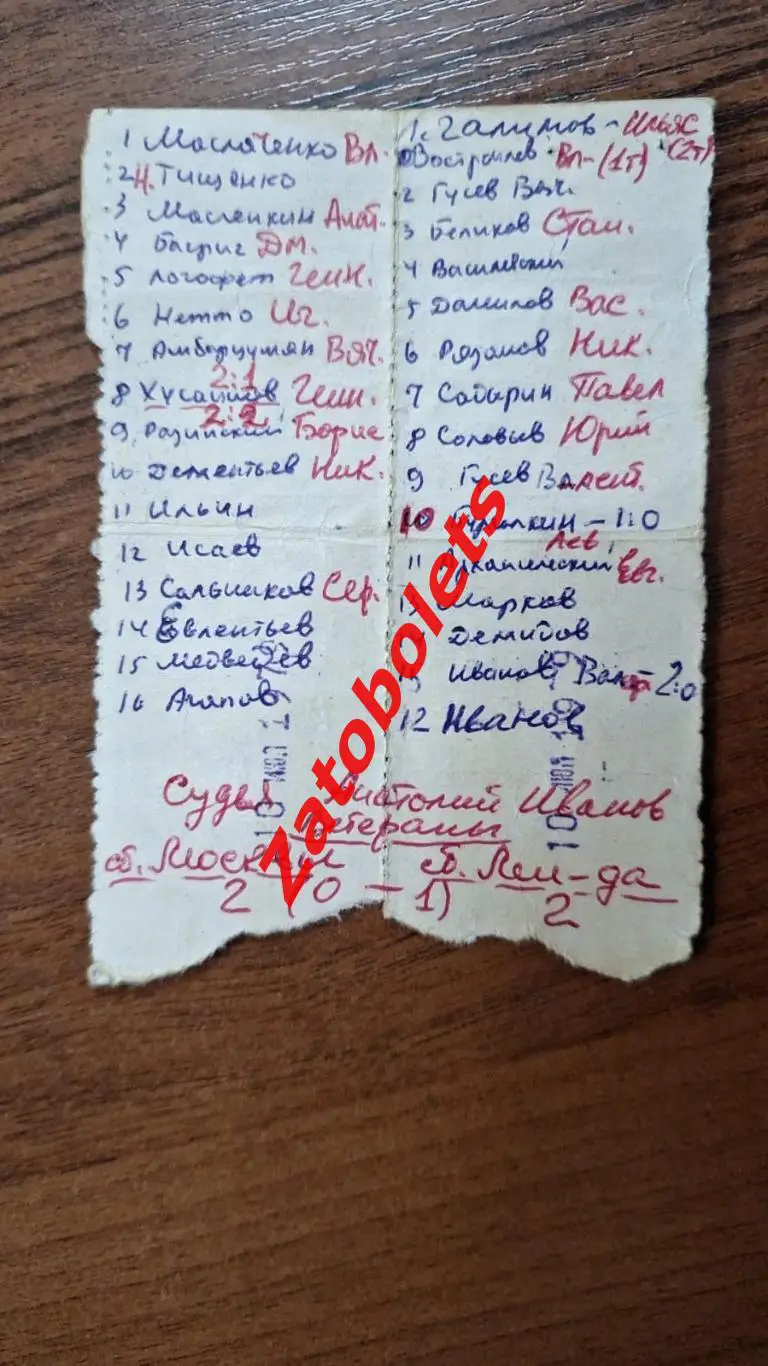 1 Маслаченко Вл.
2 Н. Тищенко
3 Масленкин Анат.
4 Багрич Дм.
5 Логофет Генн.
6 Нетто Иг.
7 Амбарцумян Вяч.
2:1
8 Хусаинов Генн.
2:2
9. Разинский Борис
10 Дементьев Ник.
11 Ильин
12 Исаев
13 Сальников Сер.
14 Евлентьев
15 Медведев
16 Агапов
1. Галимов - Ильяс (2т)
Востроилов Вл - (1т)
2 Гусев Вяч.
3 Беликов Стан.
4 Василевский
5 Данилов Вас.
6 Рязанов Ник.
7 Садырин Павел
8 Соловьев Юрий
9 Гусев Валент.
10 - 1:0
Лев
11 Евг.
13 Марков
Демидов
Иванов 2:0
12 Иванов
Судья Анатолий Иванов
ветераны
сб. Москвы сб. Лен-да
2 (0 - 1) 2
Zatobolets